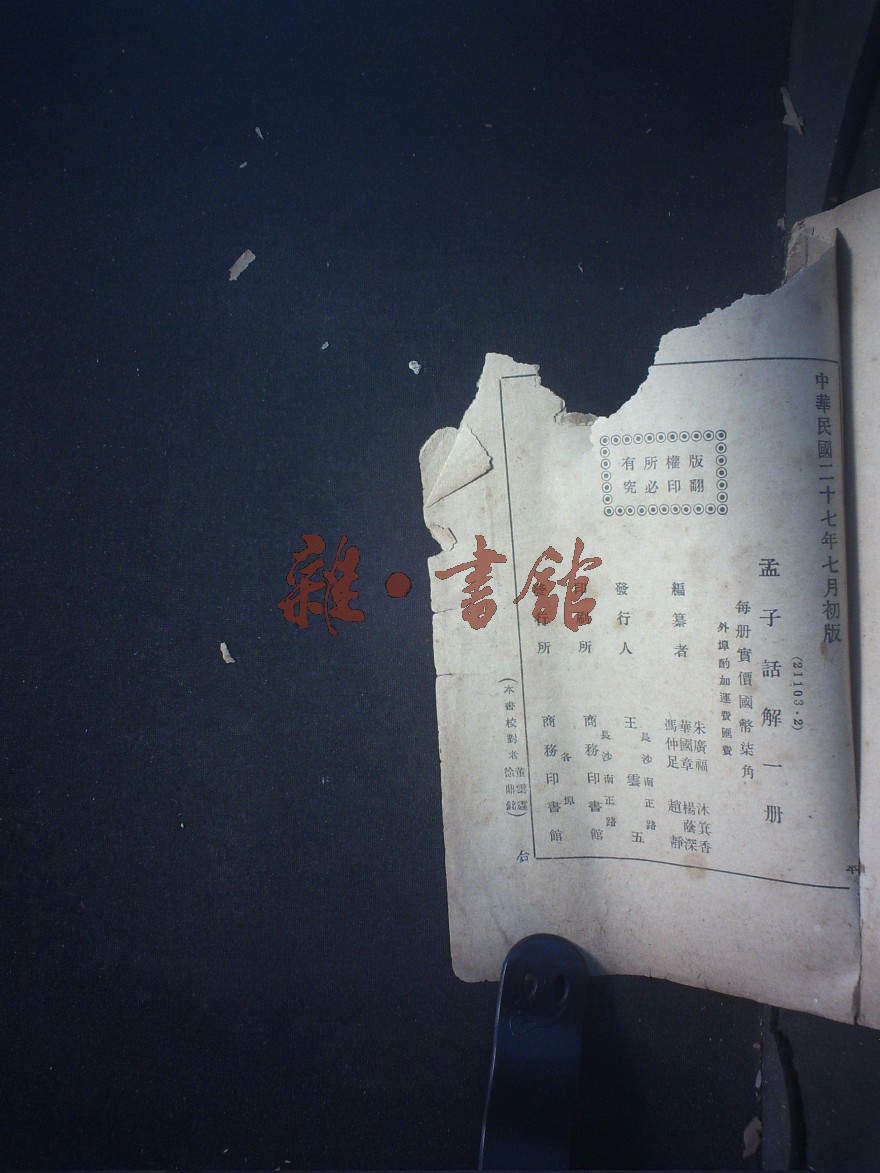 中華民國二十七年七月初版
(21103·2)
孟子話解一册
每册實價國幣柒角
外埠酌加運費匯費
版權所有
翻印必究
編纂者
朱廣福 沐箕香
華國章 楊蔭深
馮仲足 趙靜
發行人
王雲五
長沙南正路
印刷所
商務印書館
長沙南正路
發行所
商務印書館
各埠
(本書校對者
徐鼎銘)
雜·書館